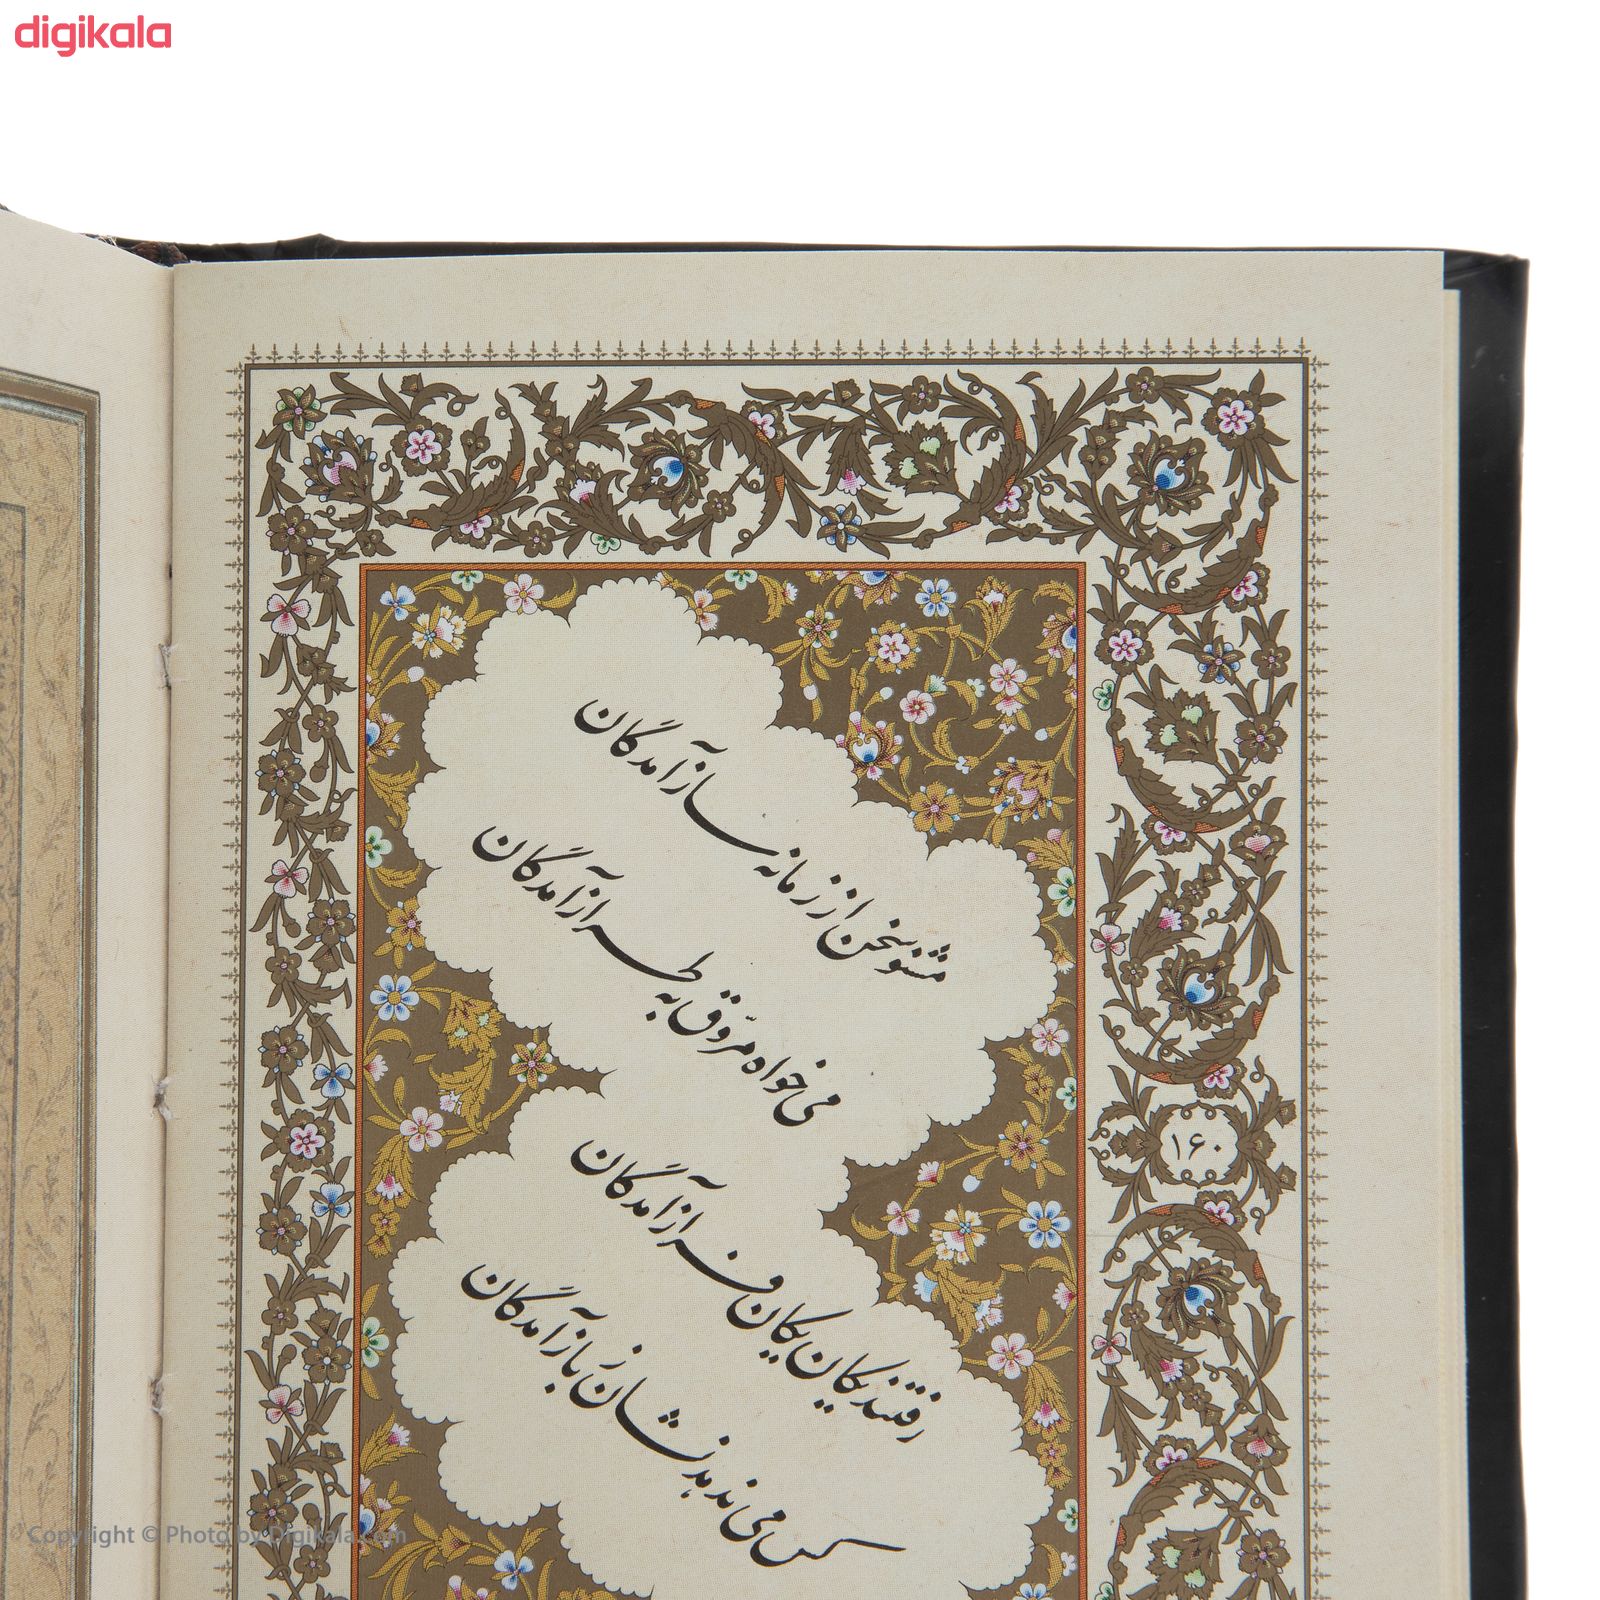 digikala
مشنو سخن از زمانه ساز آمدگان
می خواه مروّق به طراز آمدگان
۱۶۰
رفتند یکان یکان فراز آمدگان
کس می ندهد نشان ز باز آمدگان
Copyright © Photo by Digikala.com